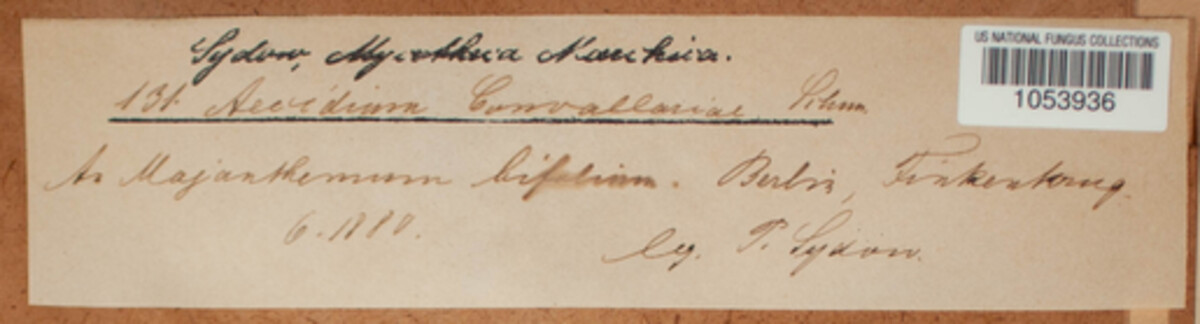 Sydow, Mycotheca Marchica.
US NATIONAL FUNGUS COLLECTIONS
1053936
131. Aecidium Convallariae Schum.
An Majanthemum bifolium. Berlin, Finkenkrug.
6.1880.
leg. P. Sydow.